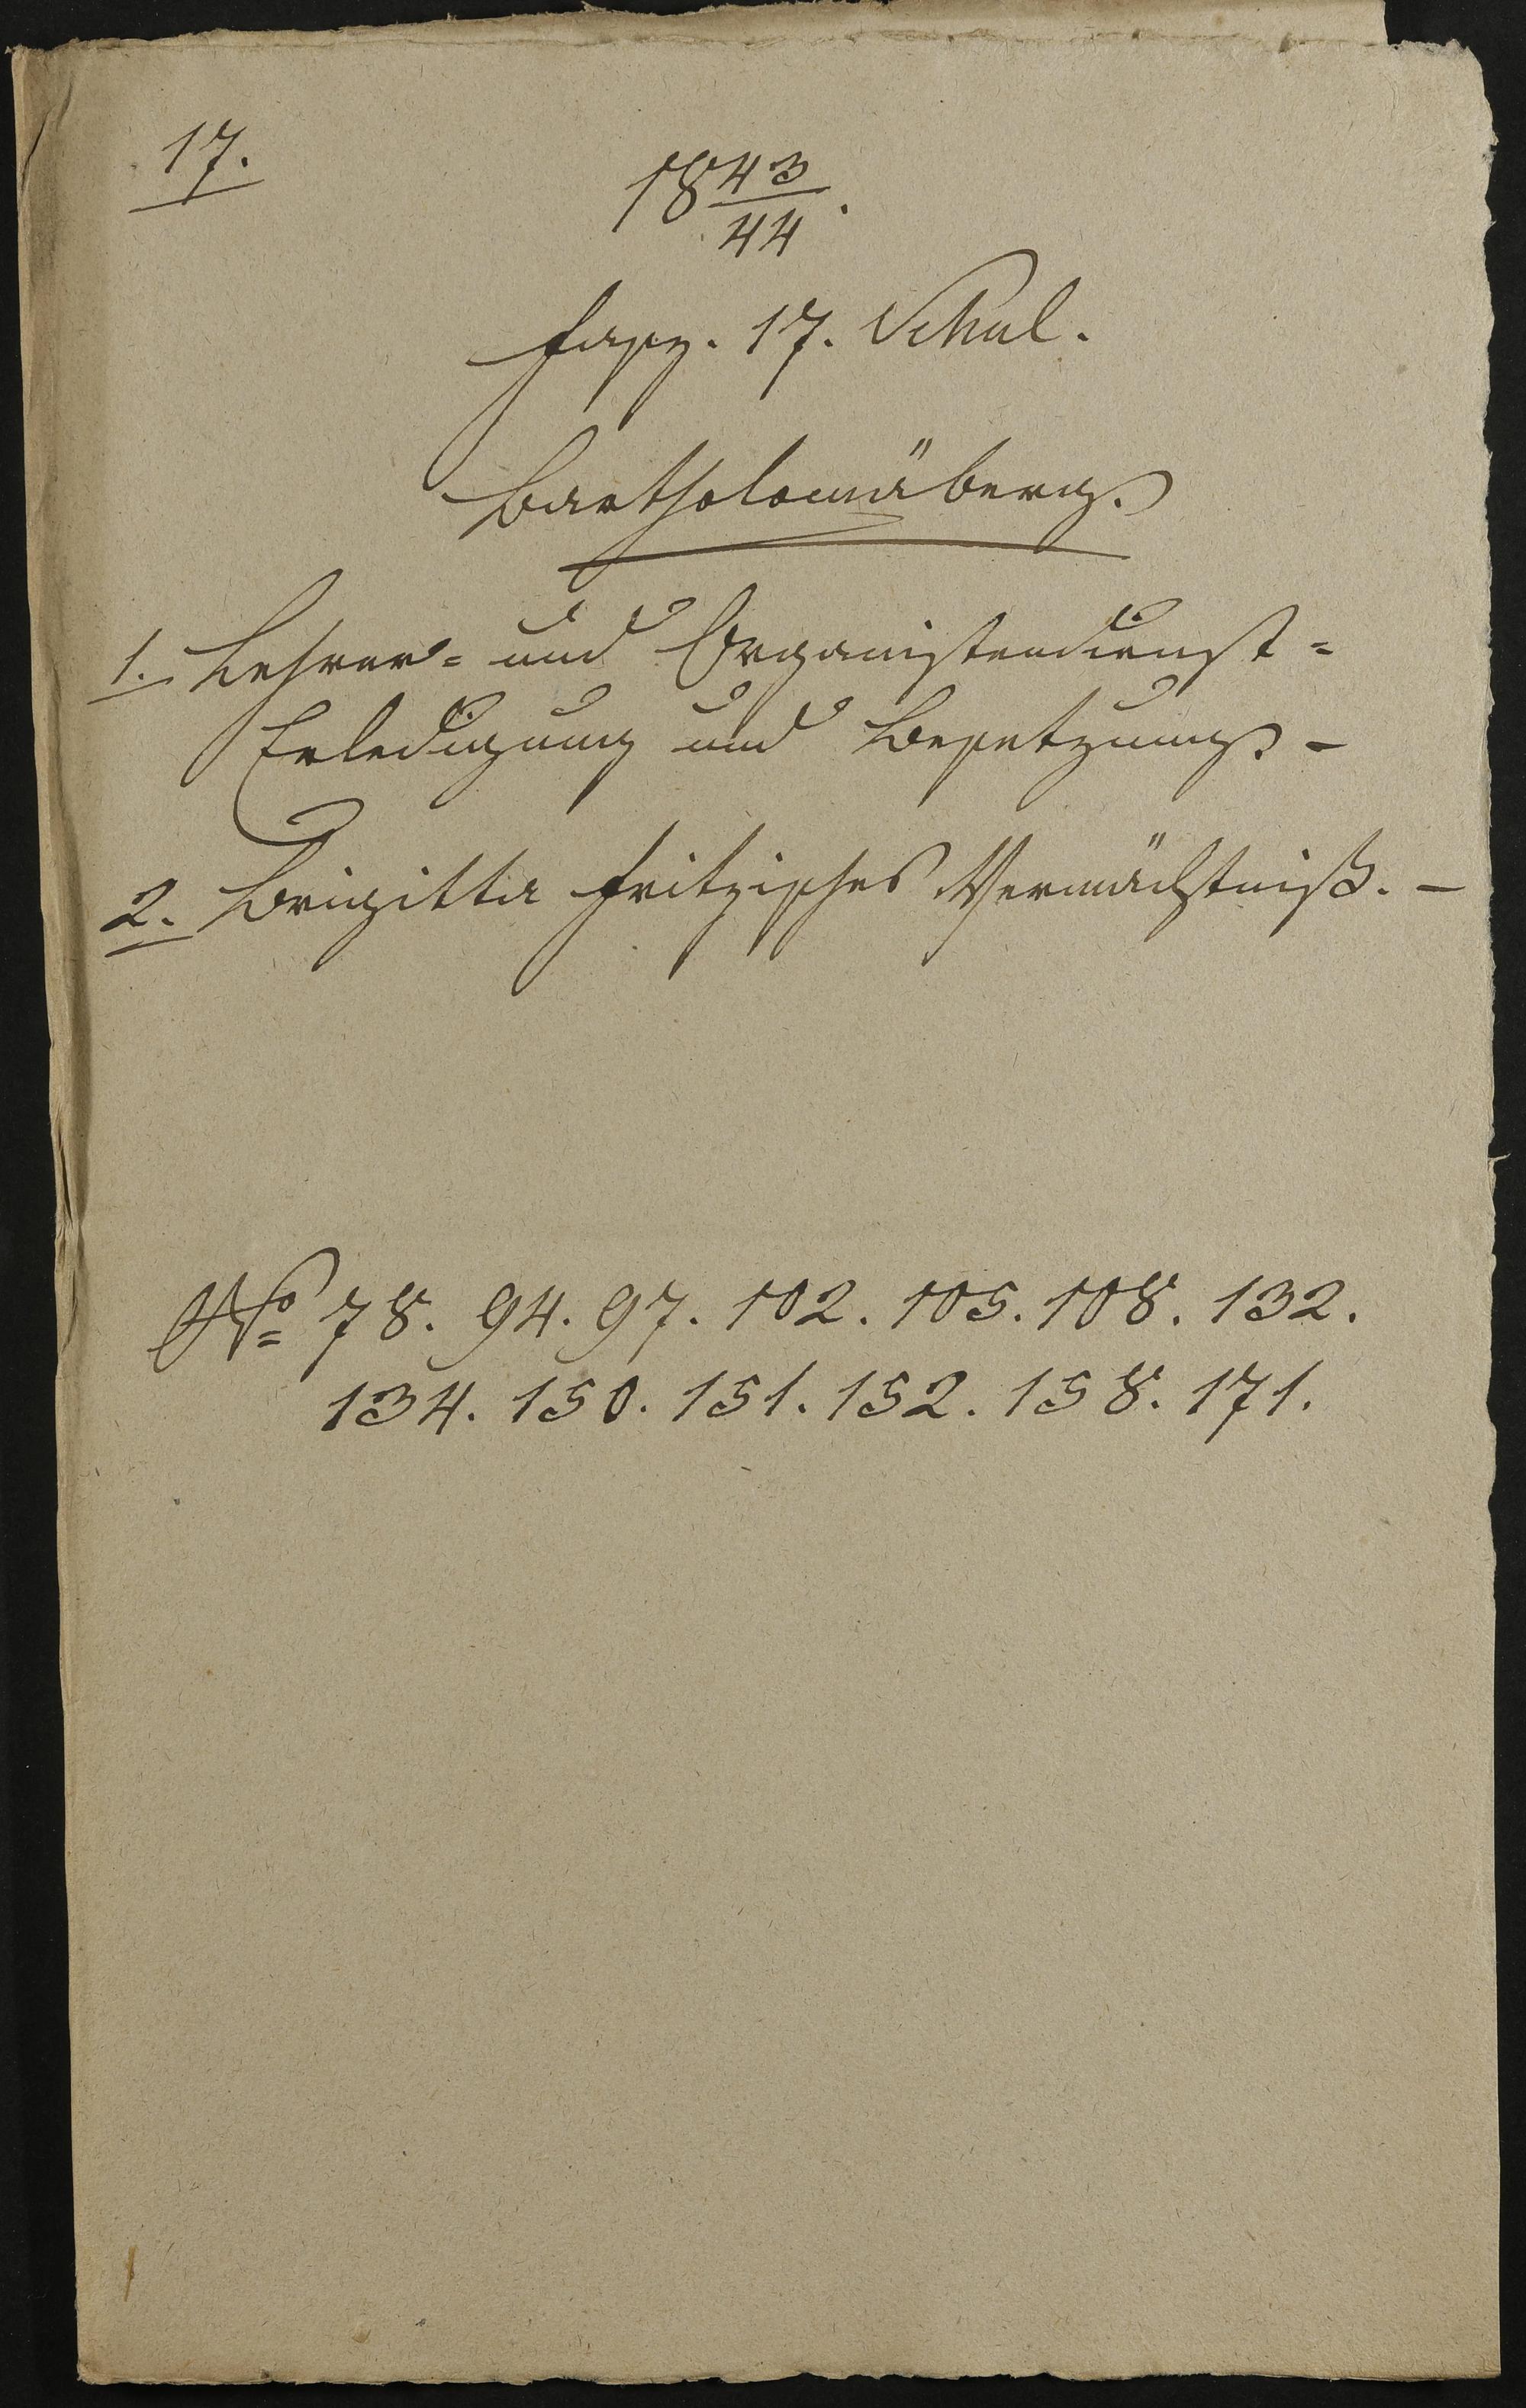 17.
18 43/44.
Fasz. 17. Schul.
Bartholomäberg.
1. Lehrer- und Organistendienst=
Erledigung und Besetzung. -
2. Brigitta Fritzisches Vermächtniß. -
No 78. 94. 97. 102. 105. 108. 132.
134. 150. 151. 152. 158. 171.